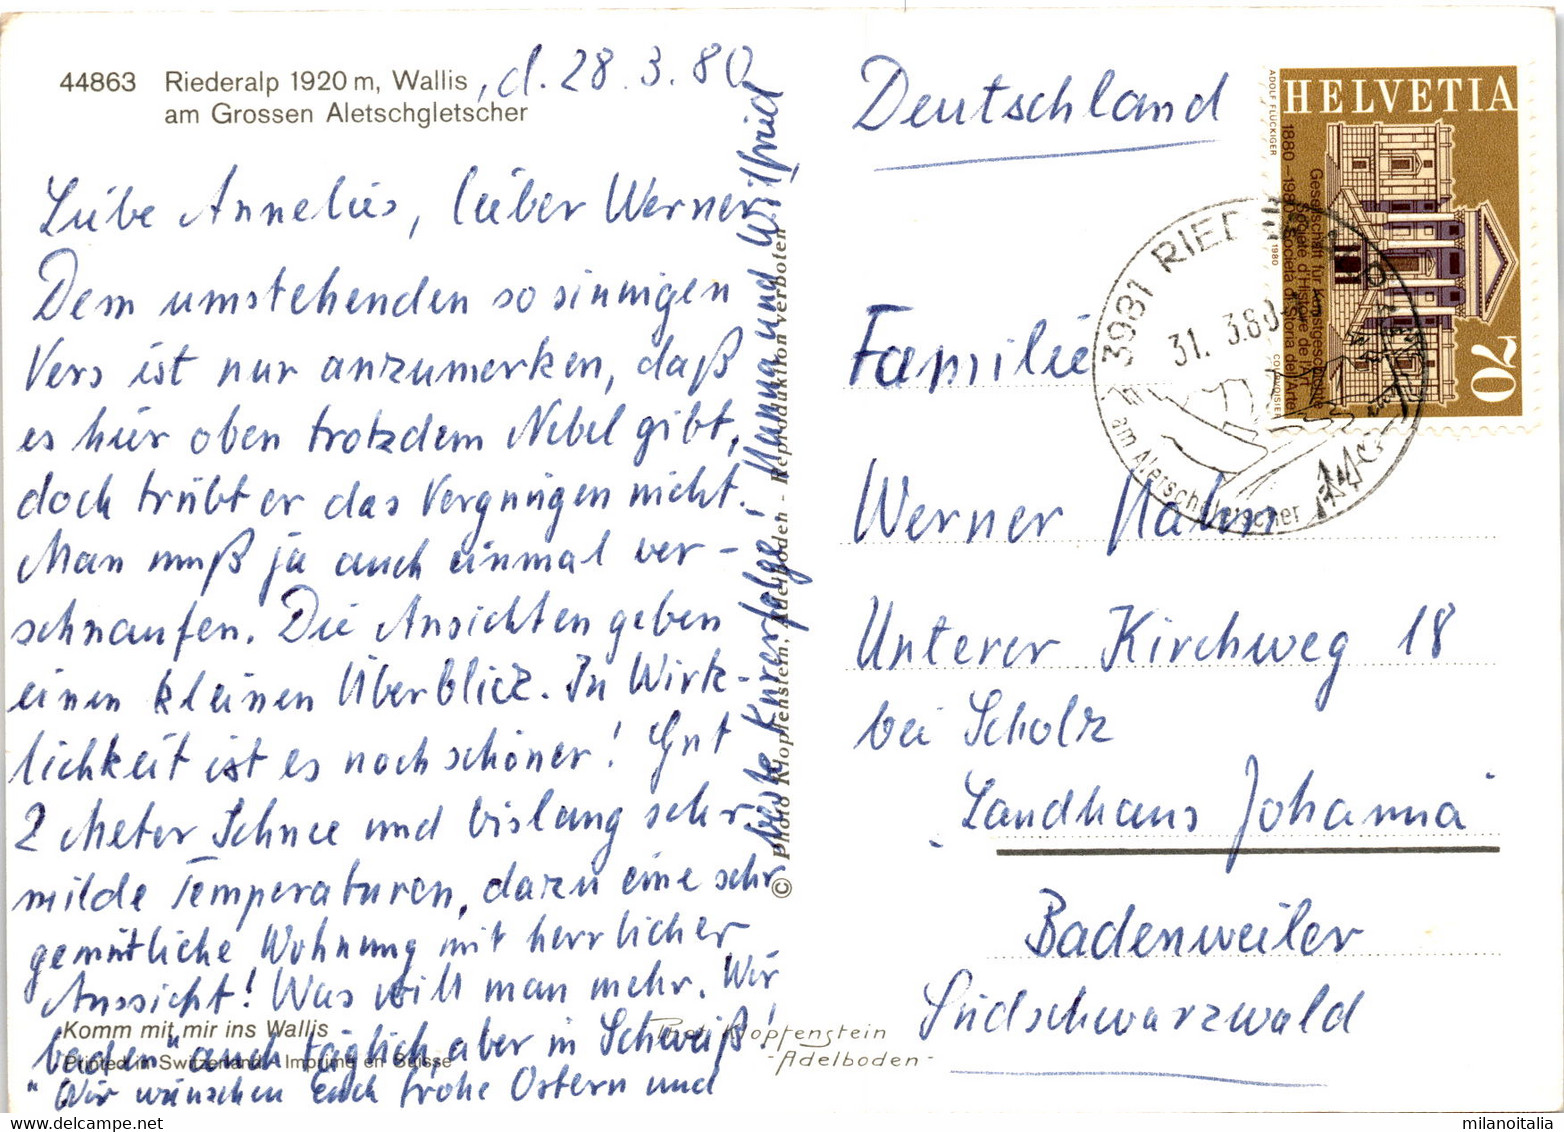 44863 Riederalp 1920 m, Wallis, d. 28.3.80
am Grossen Aletschgletscher
Liebe Annelies, lieber Werner
Dem umstehenden so sinnigen
Vers ist nur anzumerken, daß
es hier oben trotzdem Nebel gibt,
doch trübt er das Vergnügen nicht.
Man muß ja auch einmal ver-
schnaufen. Die Ansichten geben
einen kleinen Überblick. In Wirk-
lichkeit ist es noch schöner! Gut
2 Meter Schnee und bislang sehr
milde Temperaturen, dazu eine sehr
gemütliche Wohnung mit herrlicher
Aussicht! Was will man mehr. Wir
"baden" auch täglich aber in Schweiß!
Wir wünschen Euch frohe Ostern und
beste Kurerfolge! Hanna und Wilfried
Komm mit mir ins Wallis
Printed in Switzerland - Imprimé en Suisse
© Photo Klopfenstein, Adelboden - Reproduktion verboten
Phot. Klopfenstein
-Adelboden-
Deutschland
Familie
Werner Hahn
Unterer Kirchweg 18
bei Scholz
Landhaus Johanna
Badenweiler
Südschwarzwald
HELVETIA
70
1880–1980
Gesellschaft für Kunstgeschichte
Société d'Histoire de l'Art
Società di Storia dell'Arte
ADOLF FLÜCKIGER
1980
COURVOISIER
3981 RIEDERALP
31. 3.80
am Aletschgletscher
milanoitalia